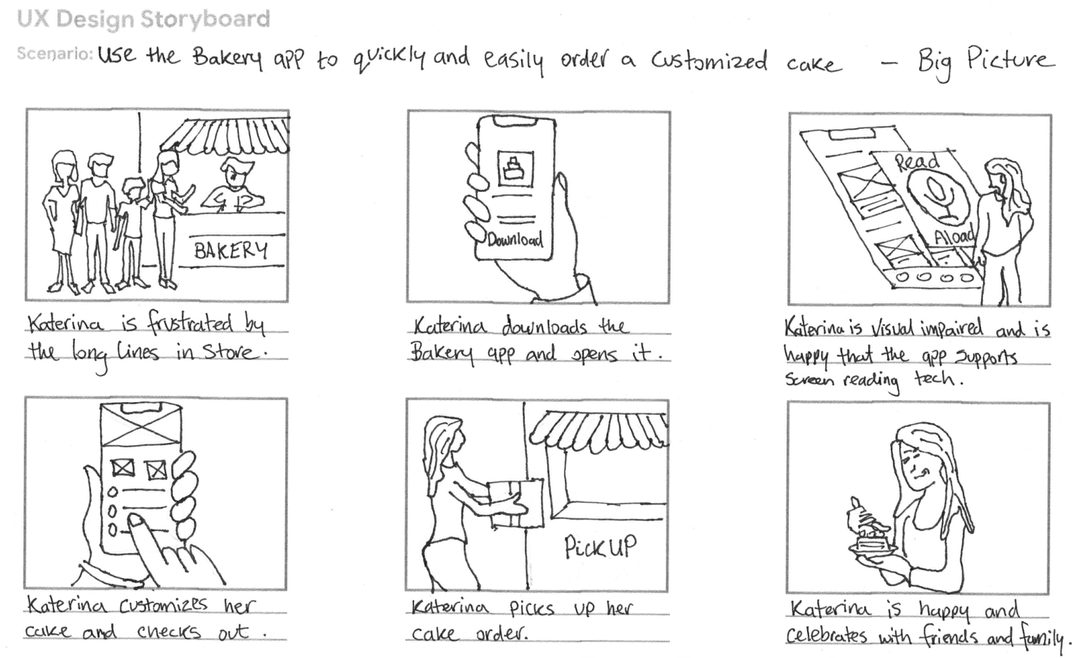 UX Design Storyboard
Scenario: Use the Bakery app to quickly and easily order a customized cake – Big Picture
BAKERY
Download
Read
Aload
Katerina is frustrated by
the long lines in store.
Katerina downloads the
Bakery app and opens it.
Katerina is visual impaired and is
happy that the app supports
screen reading tech.
PICK UP
Katerina customizes her
cake and checks out.
Katerina picks up her
cake order.
Katerina is happy and
celebrates with friends and family.